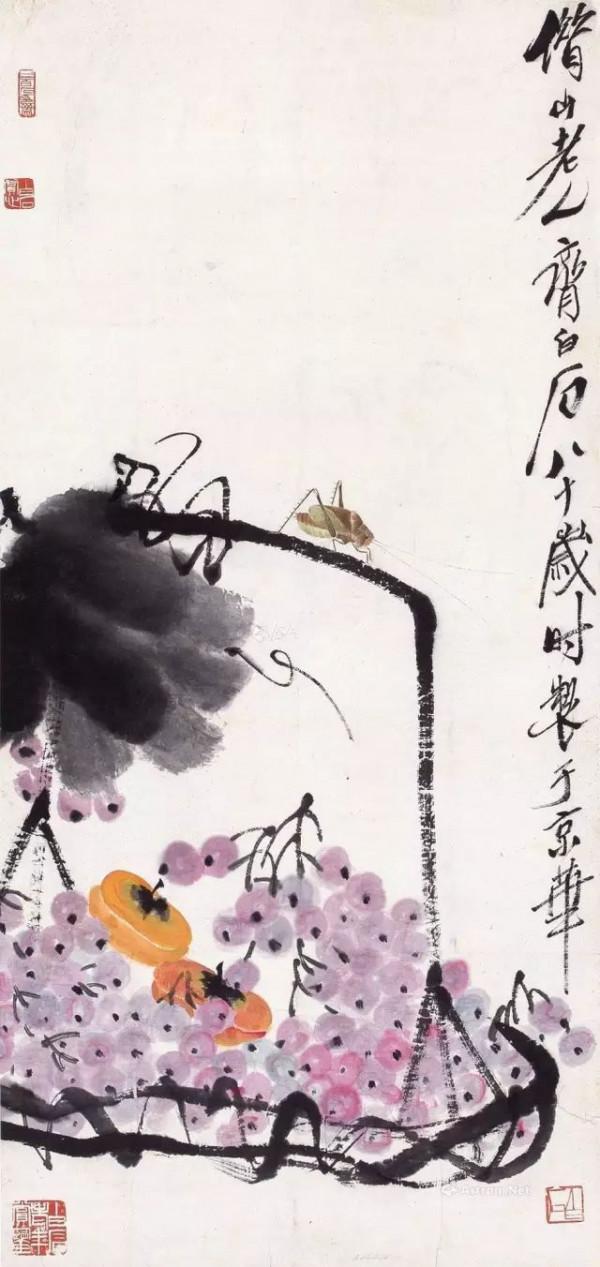 借山老人齊白石八十歲时製于京華
Artron.Net